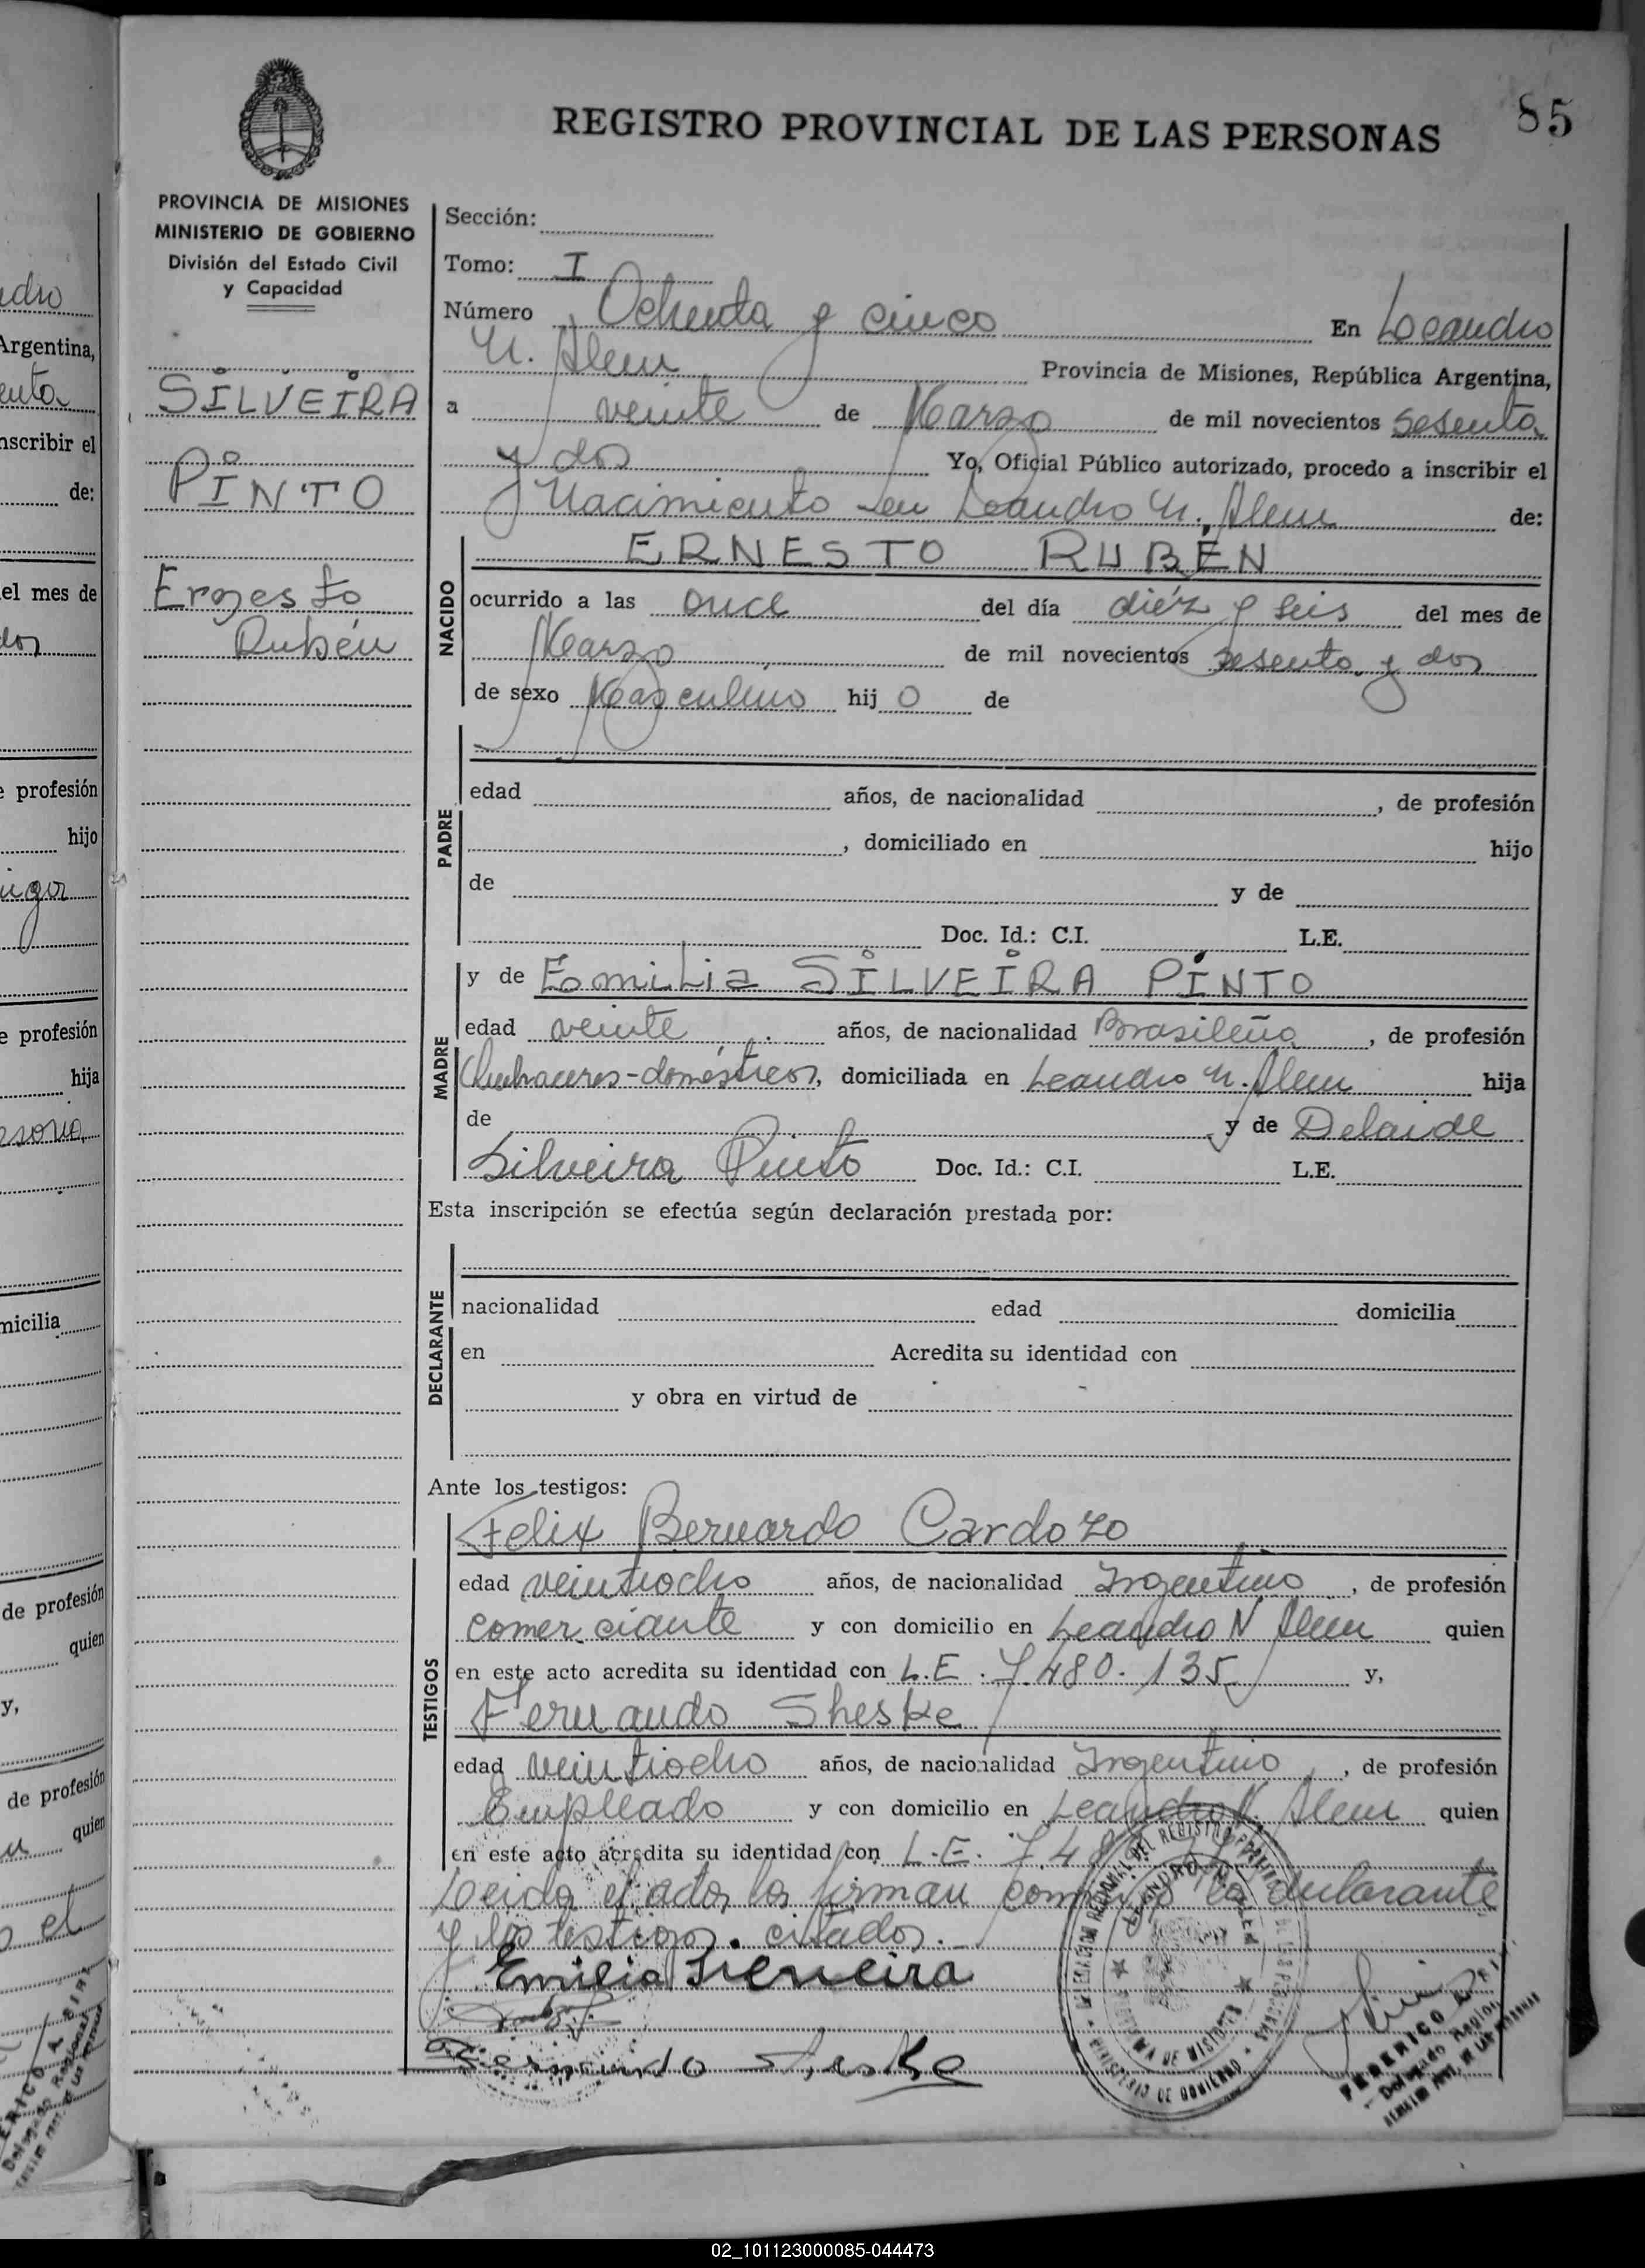 85
REGISTRO PROVINCIAL DE LAS PERSONAS
PROVINCIA DE MISIONES
MINISTERIO DE GOBIERNO
División del Estado Civil
y Capacidad
SILVEIRA
PINTO
Ernesto
Rubén
Sección:
Tomo: I
Número Ochenta y cinco En Leandro
N. Alem Provincia de Misiones, República Argentina,
a veinte de Marzo de mil novecientos sesenta
y dos Yo, Oficial Público autorizado, procedo a inscribir el
Nacimiento en Leandro N. Alem de:
NACIDO
ERNESTO RUBÉN
ocurrido a las once del día diéz y seis del mes de
Marzo de mil novecientos sesenta y dos
de sexo Masculino hij o de
PADRE
edad años, de nacionalidad , de profesión
, domiciliado en hijo
de y de
Doc. Id.: C.I. L.E.
MADRE
y de Emilia SILVEIRA PINTO
edad veinte años, de nacionalidad Brasileña, de profesión
Quehaceres-domésticos, domiciliada en Leandro N. Alem hija
de y de Delaide
Silveira Pinto Doc. Id.: C.I. L.E.
Esta inscripción se efectúa según declaración prestada por:
DECLARANTE
nacionalidad edad domicilia
en Acredita su identidad con
y obra en virtud de
Ante los testigos:
TESTIGOS
Felix Bernardo Cardozo
edad veintiocho años, de nacionalidad Argentino, de profesión
comerciante y con domicilio en Leandro N Alem quien
en este acto acredita su identidad con L.E. 7.480.135 y,
Fernando Sheske
edad veintiocho años, de nacionalidad Argentino, de profesión
Empleado y con domicilio en Leandro N. Alem quien
en este acto acredita su identidad con L.E. 7.48
Leida el acta la firman conmigo la declarante
y los testigos citados.
Emilia Silveira
Fernando
FEDERICO A.
Delegado Regional
MINISTERIO DE GOBIERNO
02_101123000085-044473